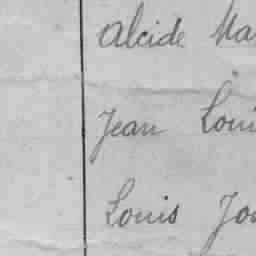 Alcide Ma
Jean Loui
Louis Jo